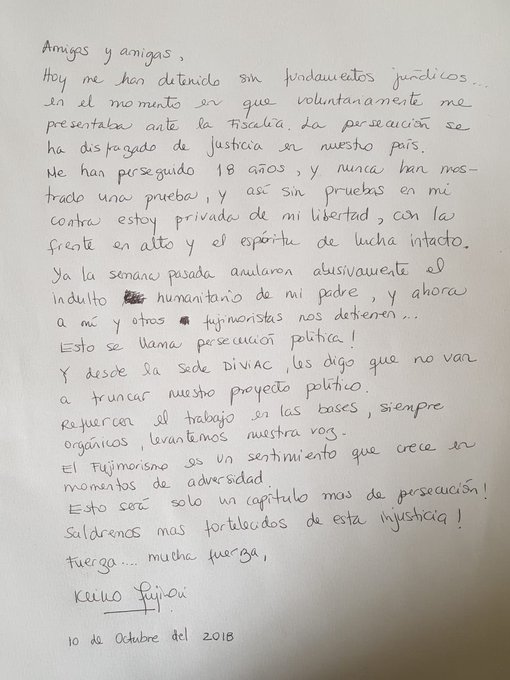 Amigas y amigas,
Hoy me han detenido sin fundamentos jurídicos...
en el momento en que voluntariamente me
presentaba ante la Fiscalía. La persecución se
ha disfrazado de justicia en nuestro país.
Me han perseguido 18 años, y nunca han mos-
trado una prueba, y así sin pruebas en mi
contra estoy privada de mi libertad, con la
frente en alto y el espíritu de lucha intacto.
Ya la semana pasada anularon abusivamente el
indulto humanitario de mi padre, y ahora
a mí y otros fujimoristas nos detienen...
Esto se llama persecución política!
Y desde la sede DIVIAC, les digo que no van
a truncar nuestro proyecto político.
Refuercen el trabajo en las bases, siempre
orgánicos, levantemos nuestra voz.
El Fujimorismo es un sentimiento que crece en
momentos de adversidad.
Esto será solo un capítulo mas de persecución!
Saldremos mas fortalecidos de esta injusticia!
Fuerza.... mucha fuerza,
Keiko Fujimori
10 de Octubre del 2018